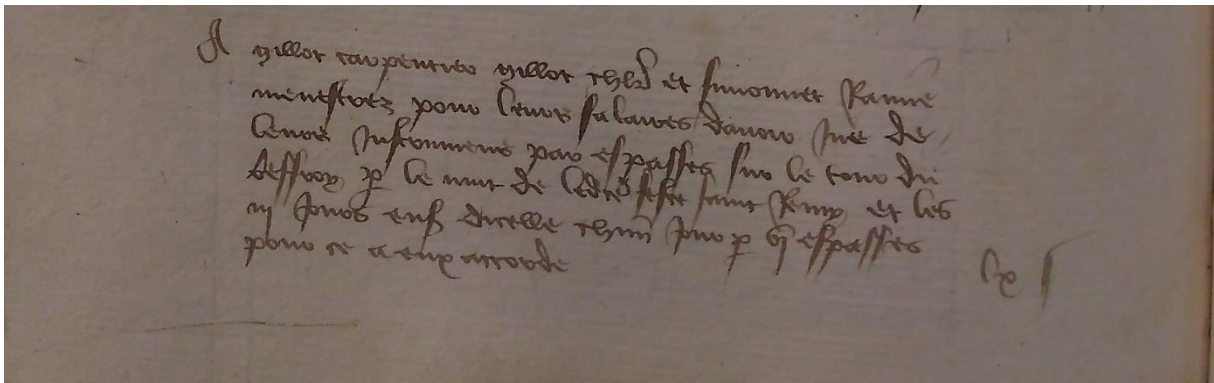 A gillot carpentier gillot et simonnet
menestrez pour leurs salaires davoir Jue de
leurs Instrumens par espasses sur le tour du
beffroy p le nuit de ledte feste saint Remy et les
iij Jours ens dicelle chun Jour p vj espasses
pour ce a eux accorde
lx s